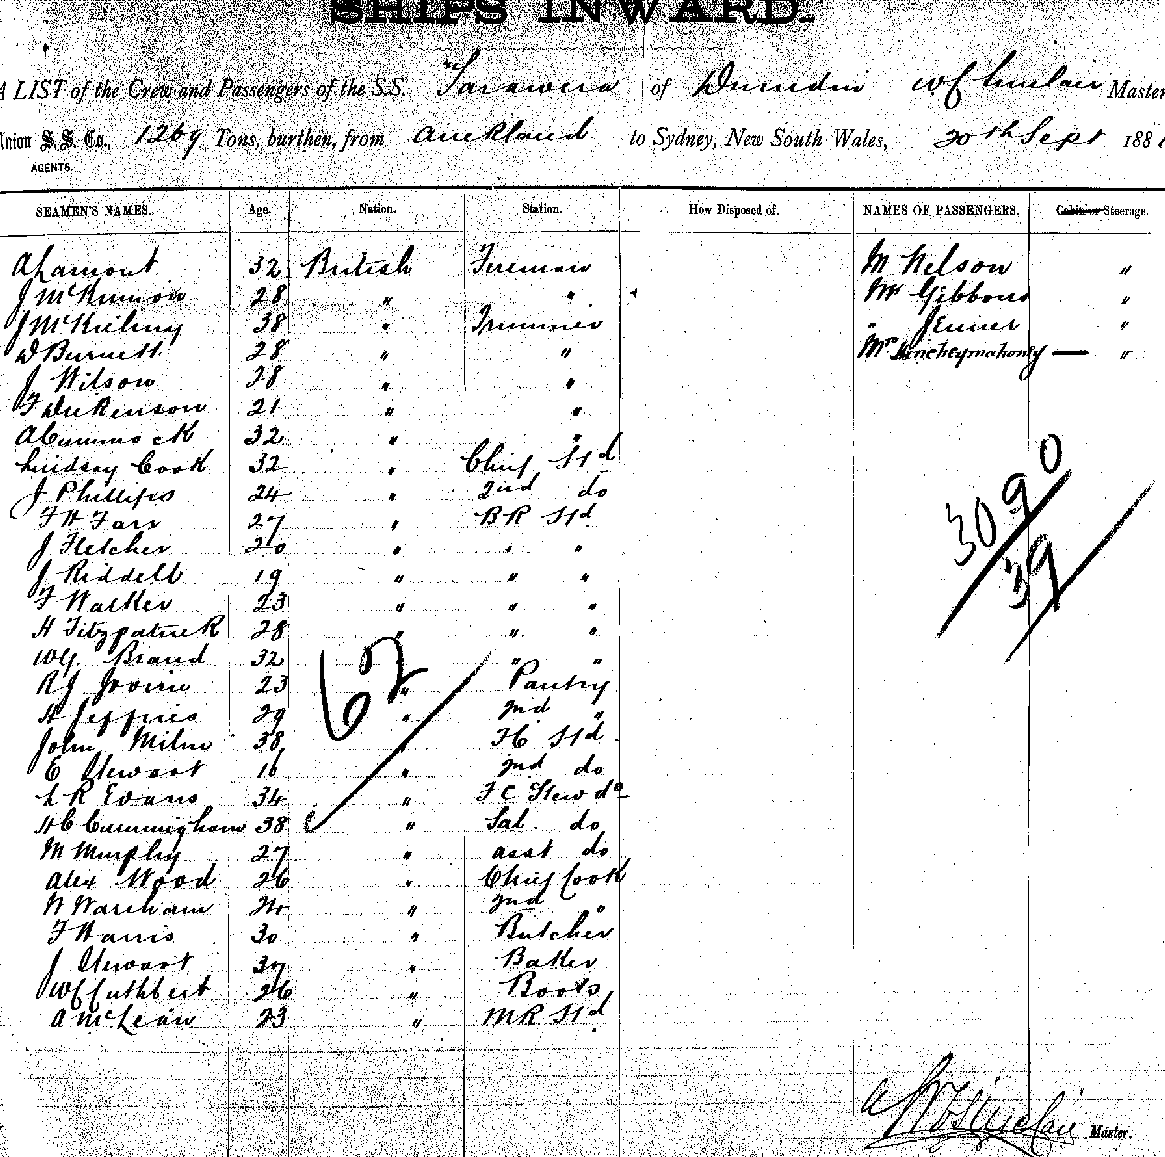 SHIPS INWARD.
A LIST of the Crew and Passengers of the S.S. "Tarawera of Dunedin W C Sinclair Master
Union S.S. Co., 1269 Tons, burthen, from Auckland to Sydney, New South Wales, 30th Sept 188
AGENTS.
SEAMEN'S NAMES. Age. Nation. Station. How Disposed of. NAMES OF PASSENGERS. Cabin or Steerage.
A Lamont 32 British Fireman M Nelson "
J McKinnon 28 " " Mr Gibbons "
J McKieliny 38 " Trimmer " Jenner "
D Burnett 28 " " Mr — "
J Wilson 28 " "
F Dickenson 21 " "
A Cummock 32 " "
Lindsay Cook 32 " Chief Std
J Phillips 24 " 2nd do
F H Farr 27 " BR Std
J Fletcher 20 " " "
J Riddell 19 " " "
F Walker 23 " " "
H Fitzpatrick 28 " " "
WG Brand 32 " "
RJ 23 " Pantry
H Jeffries 29 " 2nd "
John Milne 38 FC Std
E Stewart 16 " 2nd do
L R Evans 34 " F C Stewds
H C Cunningham 38 " Sal do
M Murphy 27 " asst do
Alex Wood 26 " Chief Cook
W Wareham 20 " 2nd "
F Harris 30 " Butcher
J Stewart 37 " Baker
WC Cuthbert 26 " Boots
A McLean 23 " MR Std
62
3090
39
W C Sinclair Master.